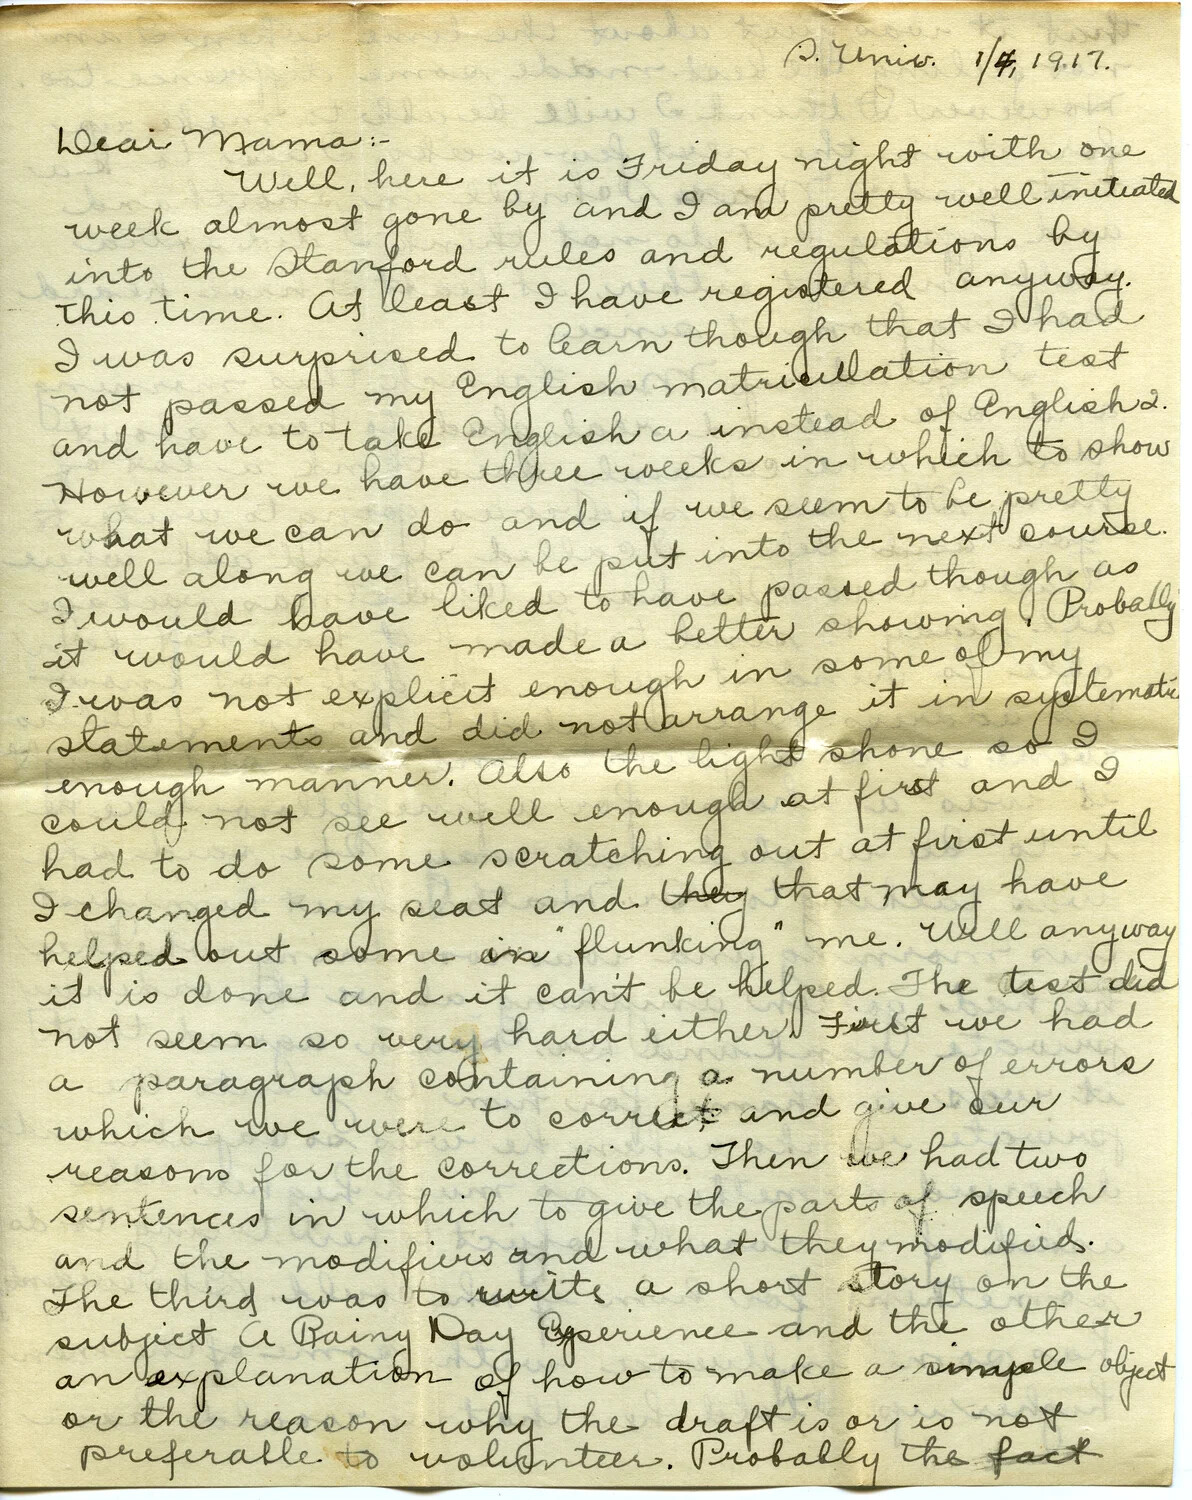 S. Univ. 1/4, 1917.
Dear Mama:-
Well, here it is Friday night with one
week almost gone by and I am pretty well initiated
into the Stanford rules and regulations by
this time. At least I have registered anyway.
I was surprised to learn though that I had
not passed my English matriculation test
and have to take English a instead of English 2.
However we have three weeks in which to show
what we can do and if we seem to be pretty
well along we can be put into the next course.
I would have liked to have passed though as
it would have made a better showing. Probably
I was not explicit enough in some of my
statements and did not arrange it in systematic
enough manner. Also the light shone so I
could not see well enough at first and I
had to do some scratching out at first until
I changed my seat and they that may have
helped out some in "flunking" me. Well anyway
it is done and it can't be helped. The test did
not seem so very hard either. First we had
a paragraph containing a number of errors
which we were to correct and give our
reasons for the corrections. Then we had two
sentences in which to give the parts of speech
and the modifiers and what they modified.
The third was to write a short story on the
subject A Rainy Day Experience and the other
an explanation of how to make a simple object
or the reason why the draft is or is not
preferable to volunteer. Probably the fact